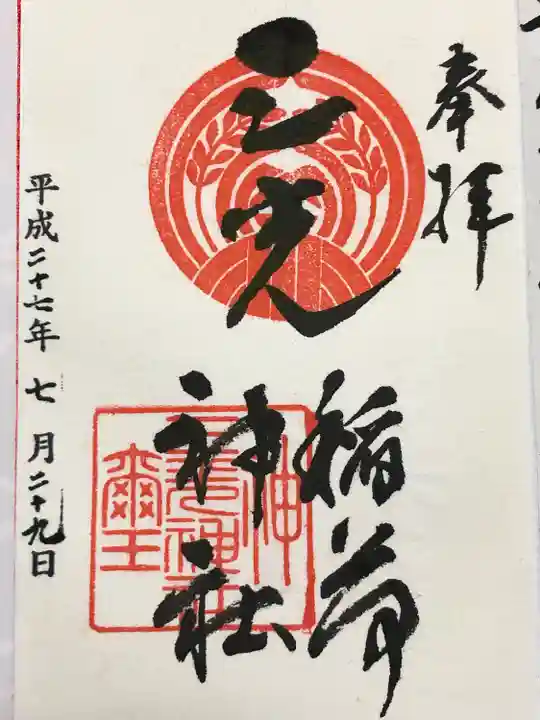 奉拝
三光
稲荷
神社
平成二十七年 七 月二十九日